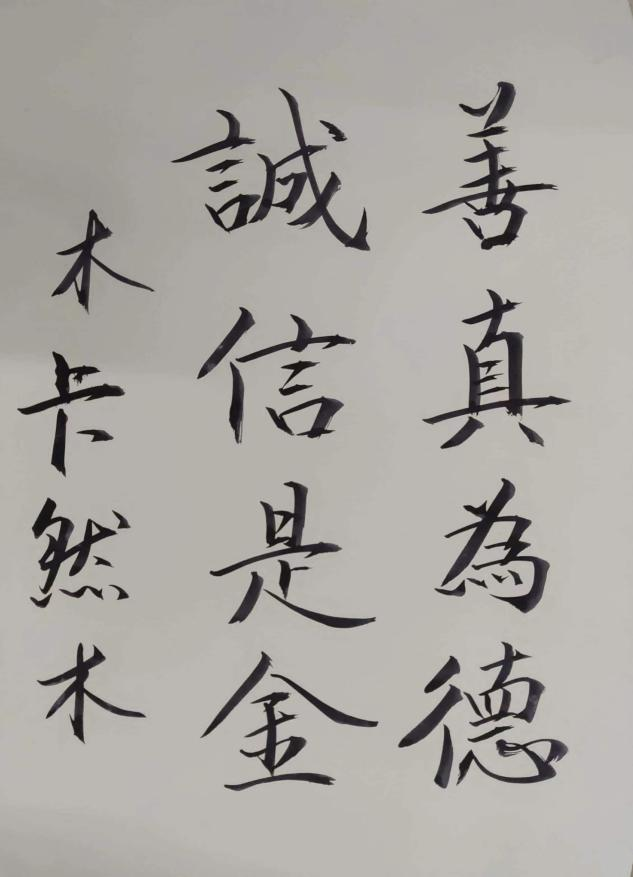 善真為德
誠信是金
木卡然木